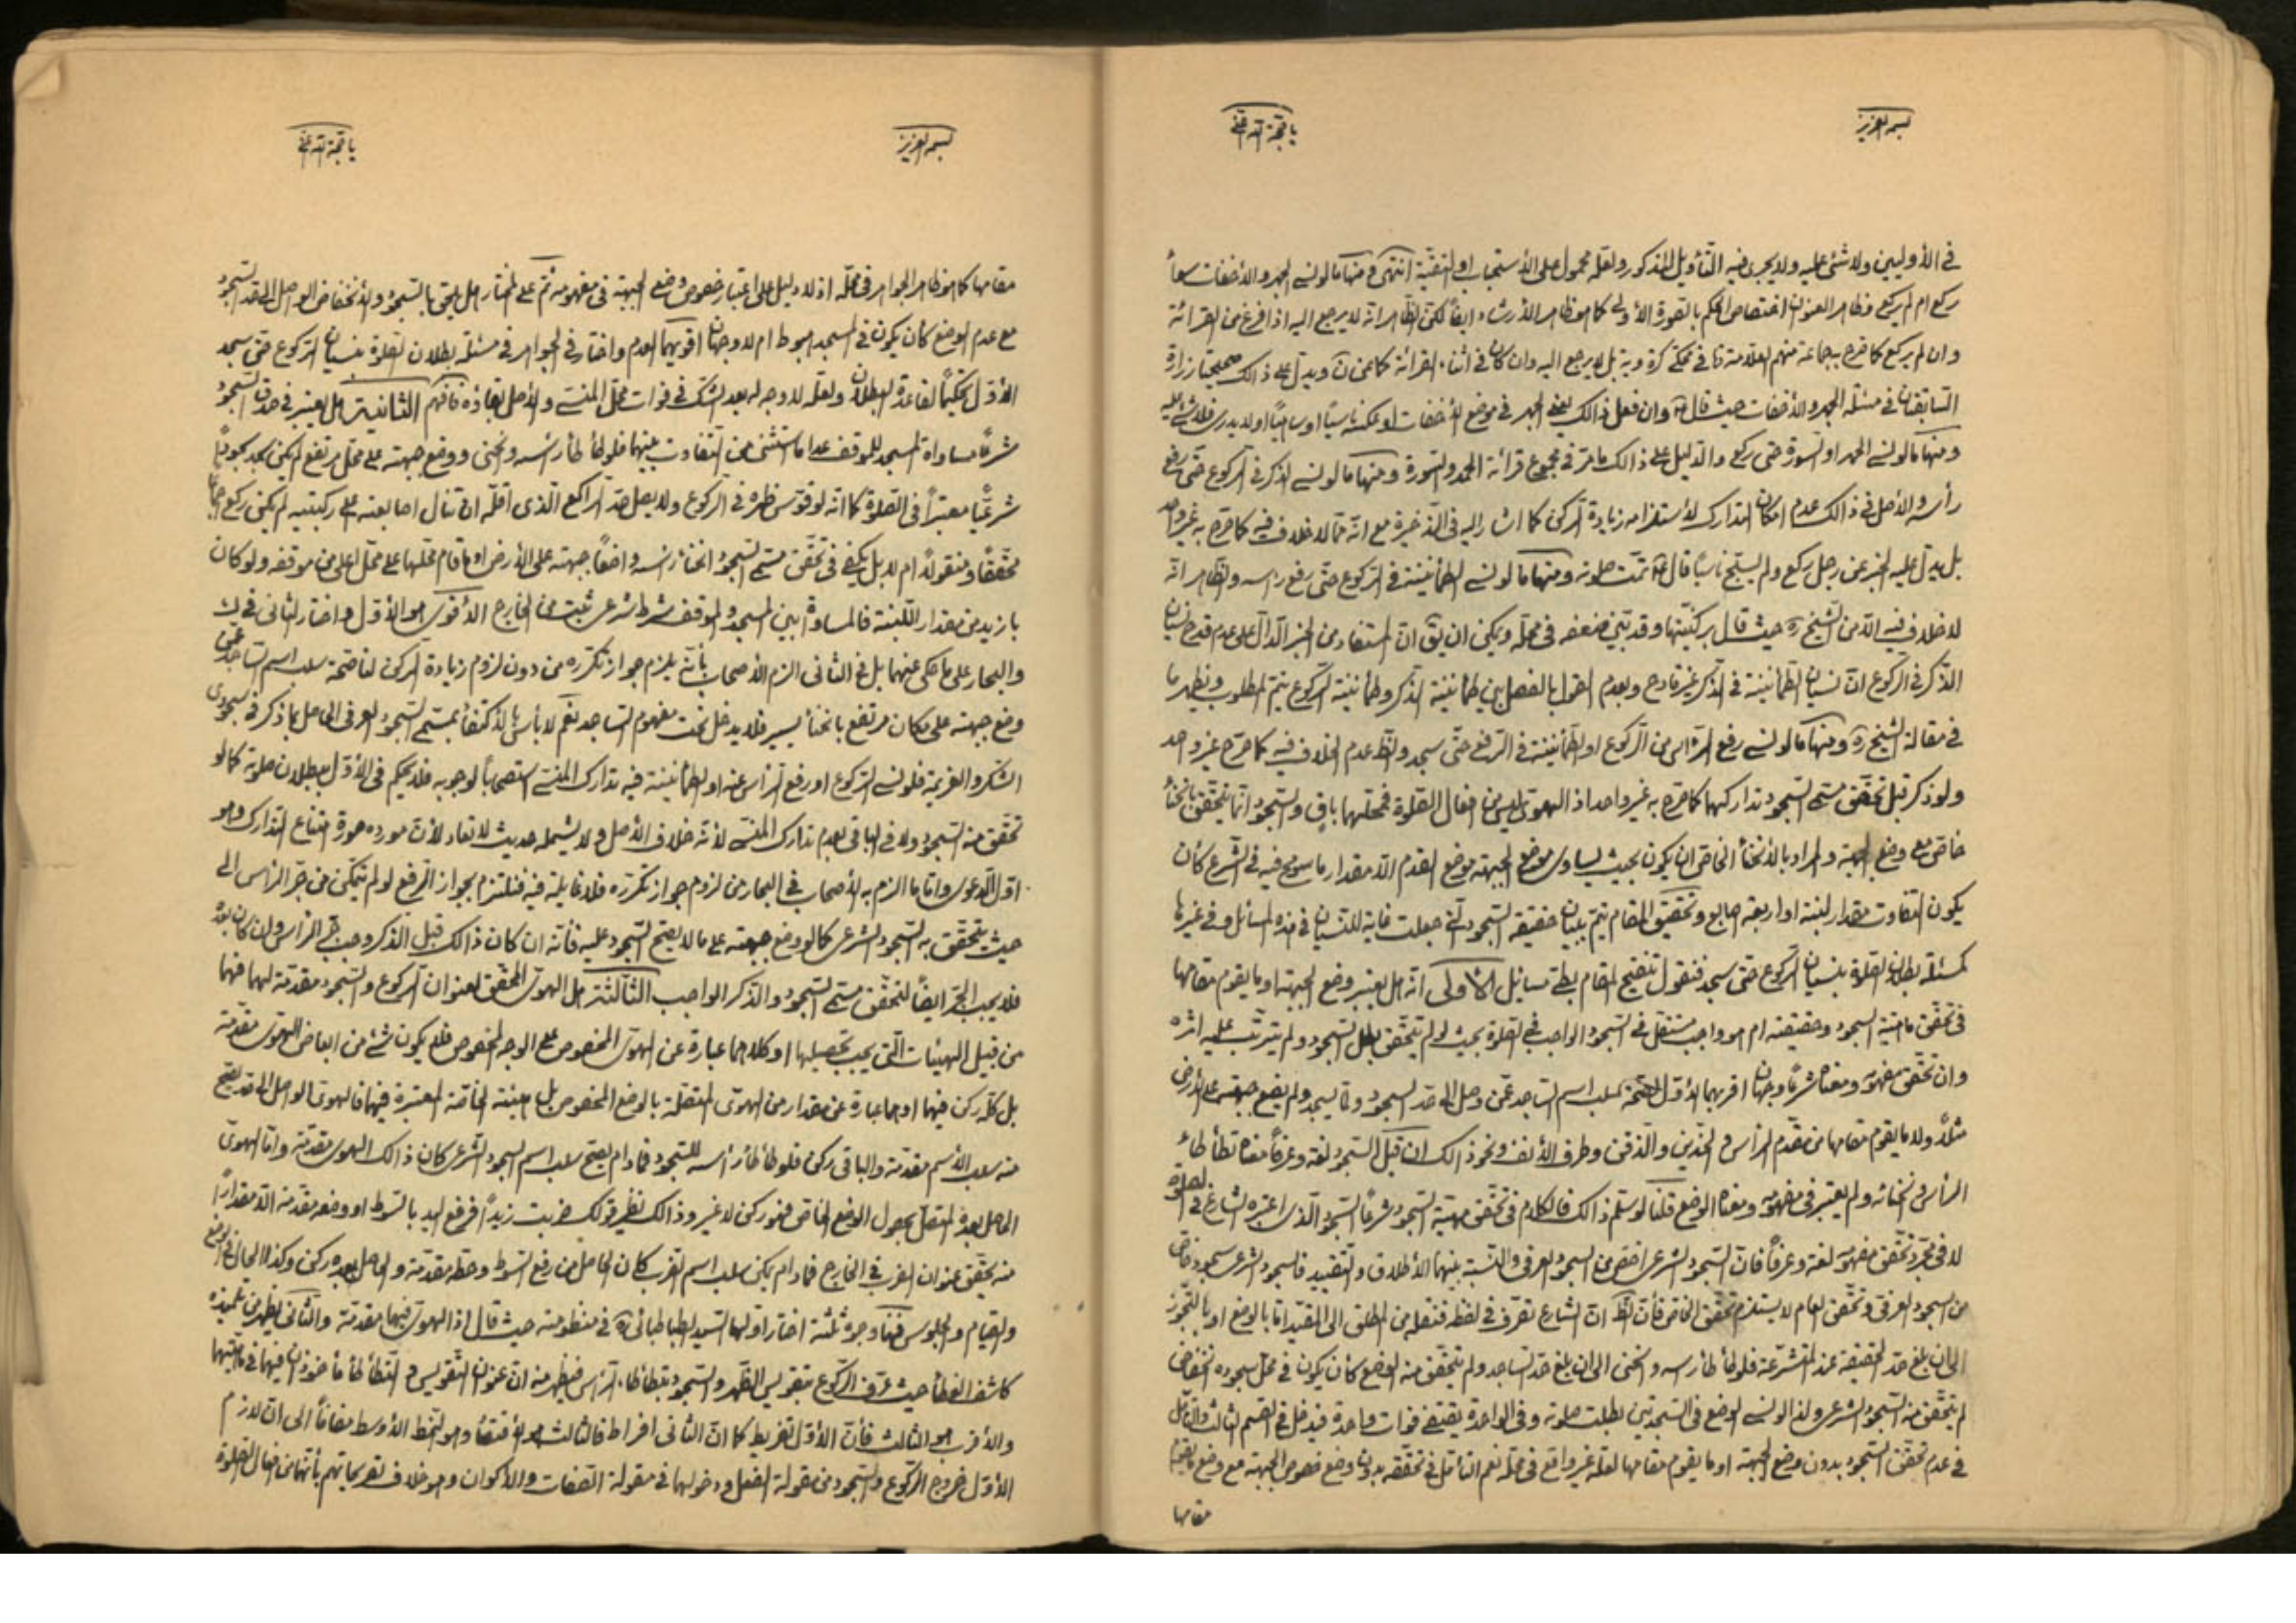 بسمه العزيز
يا حجة الله اغثنى
فى الأوليين ولا شئ عليه ولا يجرى فيه التأويل المذكور ولعله محمول على الأستحباب او التقية انتهى و منها ما لو نسى الجهر والأخفات سواءً
ركع ام لم يركع وظاهر العنوان اختصاص الحكم بالصورة الأولى كما هو ظاهر الأرشاد ايضاً لكن الظاهر انه لا يرجع اليه اذا فرغ من القرائة
وان لم يركع كما صرح به جماعة منهم العلامة ره فى محكى كرة ويه بل لا يرجع اليه وان كان فى اثناء القرائة كما عن ن ويدل على ذالك صحيحتا زرارة
السابقتان فى مسئلة الجهر والأخفات حيث قال ع وان فعل ذالك يعنى الجهر فى موضع الأخفات او عكسه ناسياً او ساهياً او لا يدرى فلا شئ عليه
ومنها ما لو نسى الحمد او السورة حتى ركع والدليل على ذالك ما مر فى مجموع قرائة الحمد والسورة ومنها ما لو نسى الذكر فى الركوع حتى رفع
رأسه والأصل فى ذالك عدم امكان التدارك لأستلزامه زيادة الركن كما اشار اليه فى الذخيرة مع انه مما لا خلاف فيه كما صرح به غير واحد
بل يدل عليه الخبر عن رجل ركع ولم يسبح ناسياً قال ع تمت صلوته ومنها ما لو نسى الطمأنينة فى الركوع حتى رفع رأسه والظاهر انه
لا خلاف فيه الا من الشيخ ره حيث قال بركنيتها وقد تبين ضعفه فى محله ويمكن ان يق ان المستفاد من الخبر الدال على عدم قدح نسيان
الذكر فى الركوع ان نسيان الطمأنينة فى الذكر غير قادح وبعدم القول بالفصل بين طمأنينة الذكر وطمأنينة الركوع يتم المطلوب ويظهر ما
فى مقالة الشيخ ره ومنها ما لو نسى رفع الرأس من الركوع او الطمأنينة فى الرفع حتى سجد والظ عدم الخلاف فيه كما صرح غير واحد
ولو ذكر قبل تحقق مسمى السجود تداركهما كما صرح به غير واحد اذ الهوى ليس من افعال الصلوة فمحلهما باق والسجود انما يتحقق بانحناء
خاص مع وضع الجبهة والمراد بالأنحناء الخاص ان يكون بحيث يساوى موضع الجبهة موضع القدم الا مقدار ما سومح فيه فى الشرع كأن
يكون التفاوت مقدار لبنة او اربعة اصابع وتحقيق المقام يتم ببيان حقيقة السجود التى جعلت غاية للنسيان فى هذه المسائل وفى غيرها
كمسئلة بطلان الصلوة بنسيان الركوع حتى سجد فنقول تنقيح المقام بطى مسائل الأولى انه هل يعتبر وضع الجبهة او ما يقوم مقامها
فى تحقق ماهية السجود وحقيقته ام هو واجب مستقل فى السجود الواجب فى الصلوة بحيث لو لم يتحقق بطل السجود ولم يترتب عليه اثره
وان تحقق مفهومه ومعناه شرعاً وجهان اقربهما الأول لصحة سلب اسم الساجد عمن وصل الى حد السجود ولما يسجد ولم يضع جبهته على الأرض
مثلاً ولا ما يقوم مقامها من مقدم الرأس والخدين والذقن وطرف الأنف ونحو ذالك ان قيل السجود لغة وعرفاً معناه تطأطاء
الرأس وانحنائه ولم يعتبر فى مفهومه ومعناه الوضع قلنا لو سلم ذالك فالكلام فى تحقق مهية السجود شرعاً السجود الذى اعتبره الشارع فى الصلوة
لا فى مجرد تحقق مفهومه لغة وعرفاً فان السجود الشرعى اخص من السجود العرفى والنسبة بينهما الأطلاق والتقييد فالسجود الشرعى سجود خاص
من السجود العرفى وتحقق العام لا يستلزم تحقق الخاص فأن الظ ان الشارع تصرف فى لفظه فنقله من المطلق الى المقيد اما بالوضع او بالتجوز
الى ان بلغ حد الحقيقة عند المتشرعة فلو طأطأ رأسه وانحنى الى ان بلغ حد الساجد ولم يتحقق منه الوضع كأن يكون فى محل سجوده انخفاض
لم يتحقق منه السجود الشرعى ولذا لو نسى الوضع فى السجدتين بطلت صلوته وفى الواحدة يقتضى فوات واحدة فيدخل فى القسم الثالث والتأمل
فى عدم تحقق السجود بدون وضع الجبهة او ما يقوم مقامها لعله غير واقع فى محله نعم التأمل فى تحققه بدون وضع خصوص الجبهة مع وضع ما يقوم
مقامها
بسمه العزيز
يا حجة الله اغثنى
مقامها كما هو ظاهر الجواهر فى محله اذ لا دليل على اعتبار خصوص وضع الجبهة فى مفهومه ثم على المختار هل يلحق بالسجود والأنخفاض الواصل الى حد السجود
مع عدم الوضع كأن يكون فى المسجد هبوط ام لا وجهان اقويهما العدم واختار فى الجواهر فى مسئلة بطلان الصلوة بنسيان الركوع حتى سجد
الأول تحكيماً لقاعدة البطلان ولعله لا وجه له بعد الشك فى فوات محل المنسى والأصل بقاؤه فافهم الثانية هل يعتبر فى صدق السجود
شرعاً مساواة المسجد للموقف عدا ما استثنى من التفاوت بينهما فلو طأطأ رأسه وانحنى ووضع جبهته على محل مرتفع لم يكن سجد سجوداً
شرعياً معتبراً فى الصلوة كما انه لو قوس ظهره فى الركوع ولا يصل حد الراكع الذى اقله ان تنال اصابعه على ركبتيه لم يكن ركع اجماعاً
محققاً ومنقولاً ام لا بل يكفى فى تحقق مسمى السجود انحناء رأسه واضعاً جبهته على الأرض او ما قام مقامها على محل اعلى من موقفه ولو كان
بازيد من مقدار اللبنة فالمساوة بين المسجد والموقف شرط شرعى ثبت من الخارج الأقوى هو الأول واختار الثانى فى ك
والبحار على ما حكى عنهما بل فى الثانى الزم الأصحاب بأنه يلزم جواز تكرره من دون لزوم زيادة الركن لنا صحة سلب اسم الساجد عمن
وضع جبهته على مكان مرتفع بانحناء يسير فلا يدخل تحت مفهوم الساجد نعم لا بأس بالأكتفاء بمسمى السجود العرفى الحاصل بما ذكر فى سجودى
الشكر والعزيمة فلو نسى الركوع او رفع الرأس عنه او الطمأنينة فيه تدارك المنسى استصحاباً لوجوبه فلا يحكم فى الأول ببطلان صلوته كما لو
تحقق منه السجود ولا فى الباقى بعدم تدارك المنسى لأنه خلاف الأصل ولا يشمله حديث لا تعاد لأن مورده صورة امتناع التدارك وهو
اول الدعوى واما ما الزم به الأصحاب فى البحار من لزوم جواز تكرره فلا غايلة فيه فنلتزم بجواز الرفع لو لم يتمكن من جر الرأس الى
حيث يتحقق به السجود الشرعى كما لو وضع جبهته على ما لا يصح السجود عليه فأنه ان كان ذالك قبل الذكر وجب جر الرأس وان كان بعده
فلا يجب الجر ايضاً لتحقق مسمى السجود والذكر الواجب الثالثة هل الهوى المحقق لعنوان الركوع والسجود مقدمة لهما فهما
من قبيل الهيئات التى يجب تحصيلها او كلاهما عبارة عن الهوى المخصوص على الوجه المخصوص فلا يكون شئ من ابعاض الهوى مقدمة
بل كله ركن فيهما او هما عبارة عن مقدار من الهوى المتصلة بالوضع المخصوص بل الهيئة الخاصة المعتبرة فيهما فالهوى الواصل الى حد يصح
منه سلب الأسم مقدمة والباقى ركن فلو طأطأ رأسه للسجود فما دام يصح سلب اسم السجود الشرعى كان ذالك الهوى مقدمة واما الهوى
الحاصل بعده المتصل بحصول الوضع الخاص فهو ركن لا غير وذالك نظير قولك ضربت زيداً فرفع اليد بالسوط او وضعه مقدمة الا مقداراً
منه يتحقق عنوان الضرب فى الخارج فما دام يمكن سلب اسم الضرب كان الحاصل من رفع السوط وحطه مقدمة والحاصل بعده ركن وكذا الحال فى الوضع
والقيام والجلوس فهنا وجوه ثلثة اختار اولها السيد الطباطبائى ره فى منظومته حيث قال اذ الهوى فيهما مقدمة والثانى يظهر من تلميذه
كاشف الغطاء حيث عرف الركوع بتقويس الظهر والسجود بتطأطأ الرأس فيظهر منه ان عنوان التقويس والتطأطأ مأخوذان فيهما فى ماهيتهما
والأقرب هو الثالث فأن الأول تفريط كما ان الثانى افراط فالثالث هو الأقتصاد وهو النمط الأوسط مضافاً الى ان لازم
الأول خروج الركوع والسجود من مقولة الفعل ودخولهما فى مقولة الصفات والأكوان وهو خلاف تصريحاتهم بأنهما من افعال الصلوة